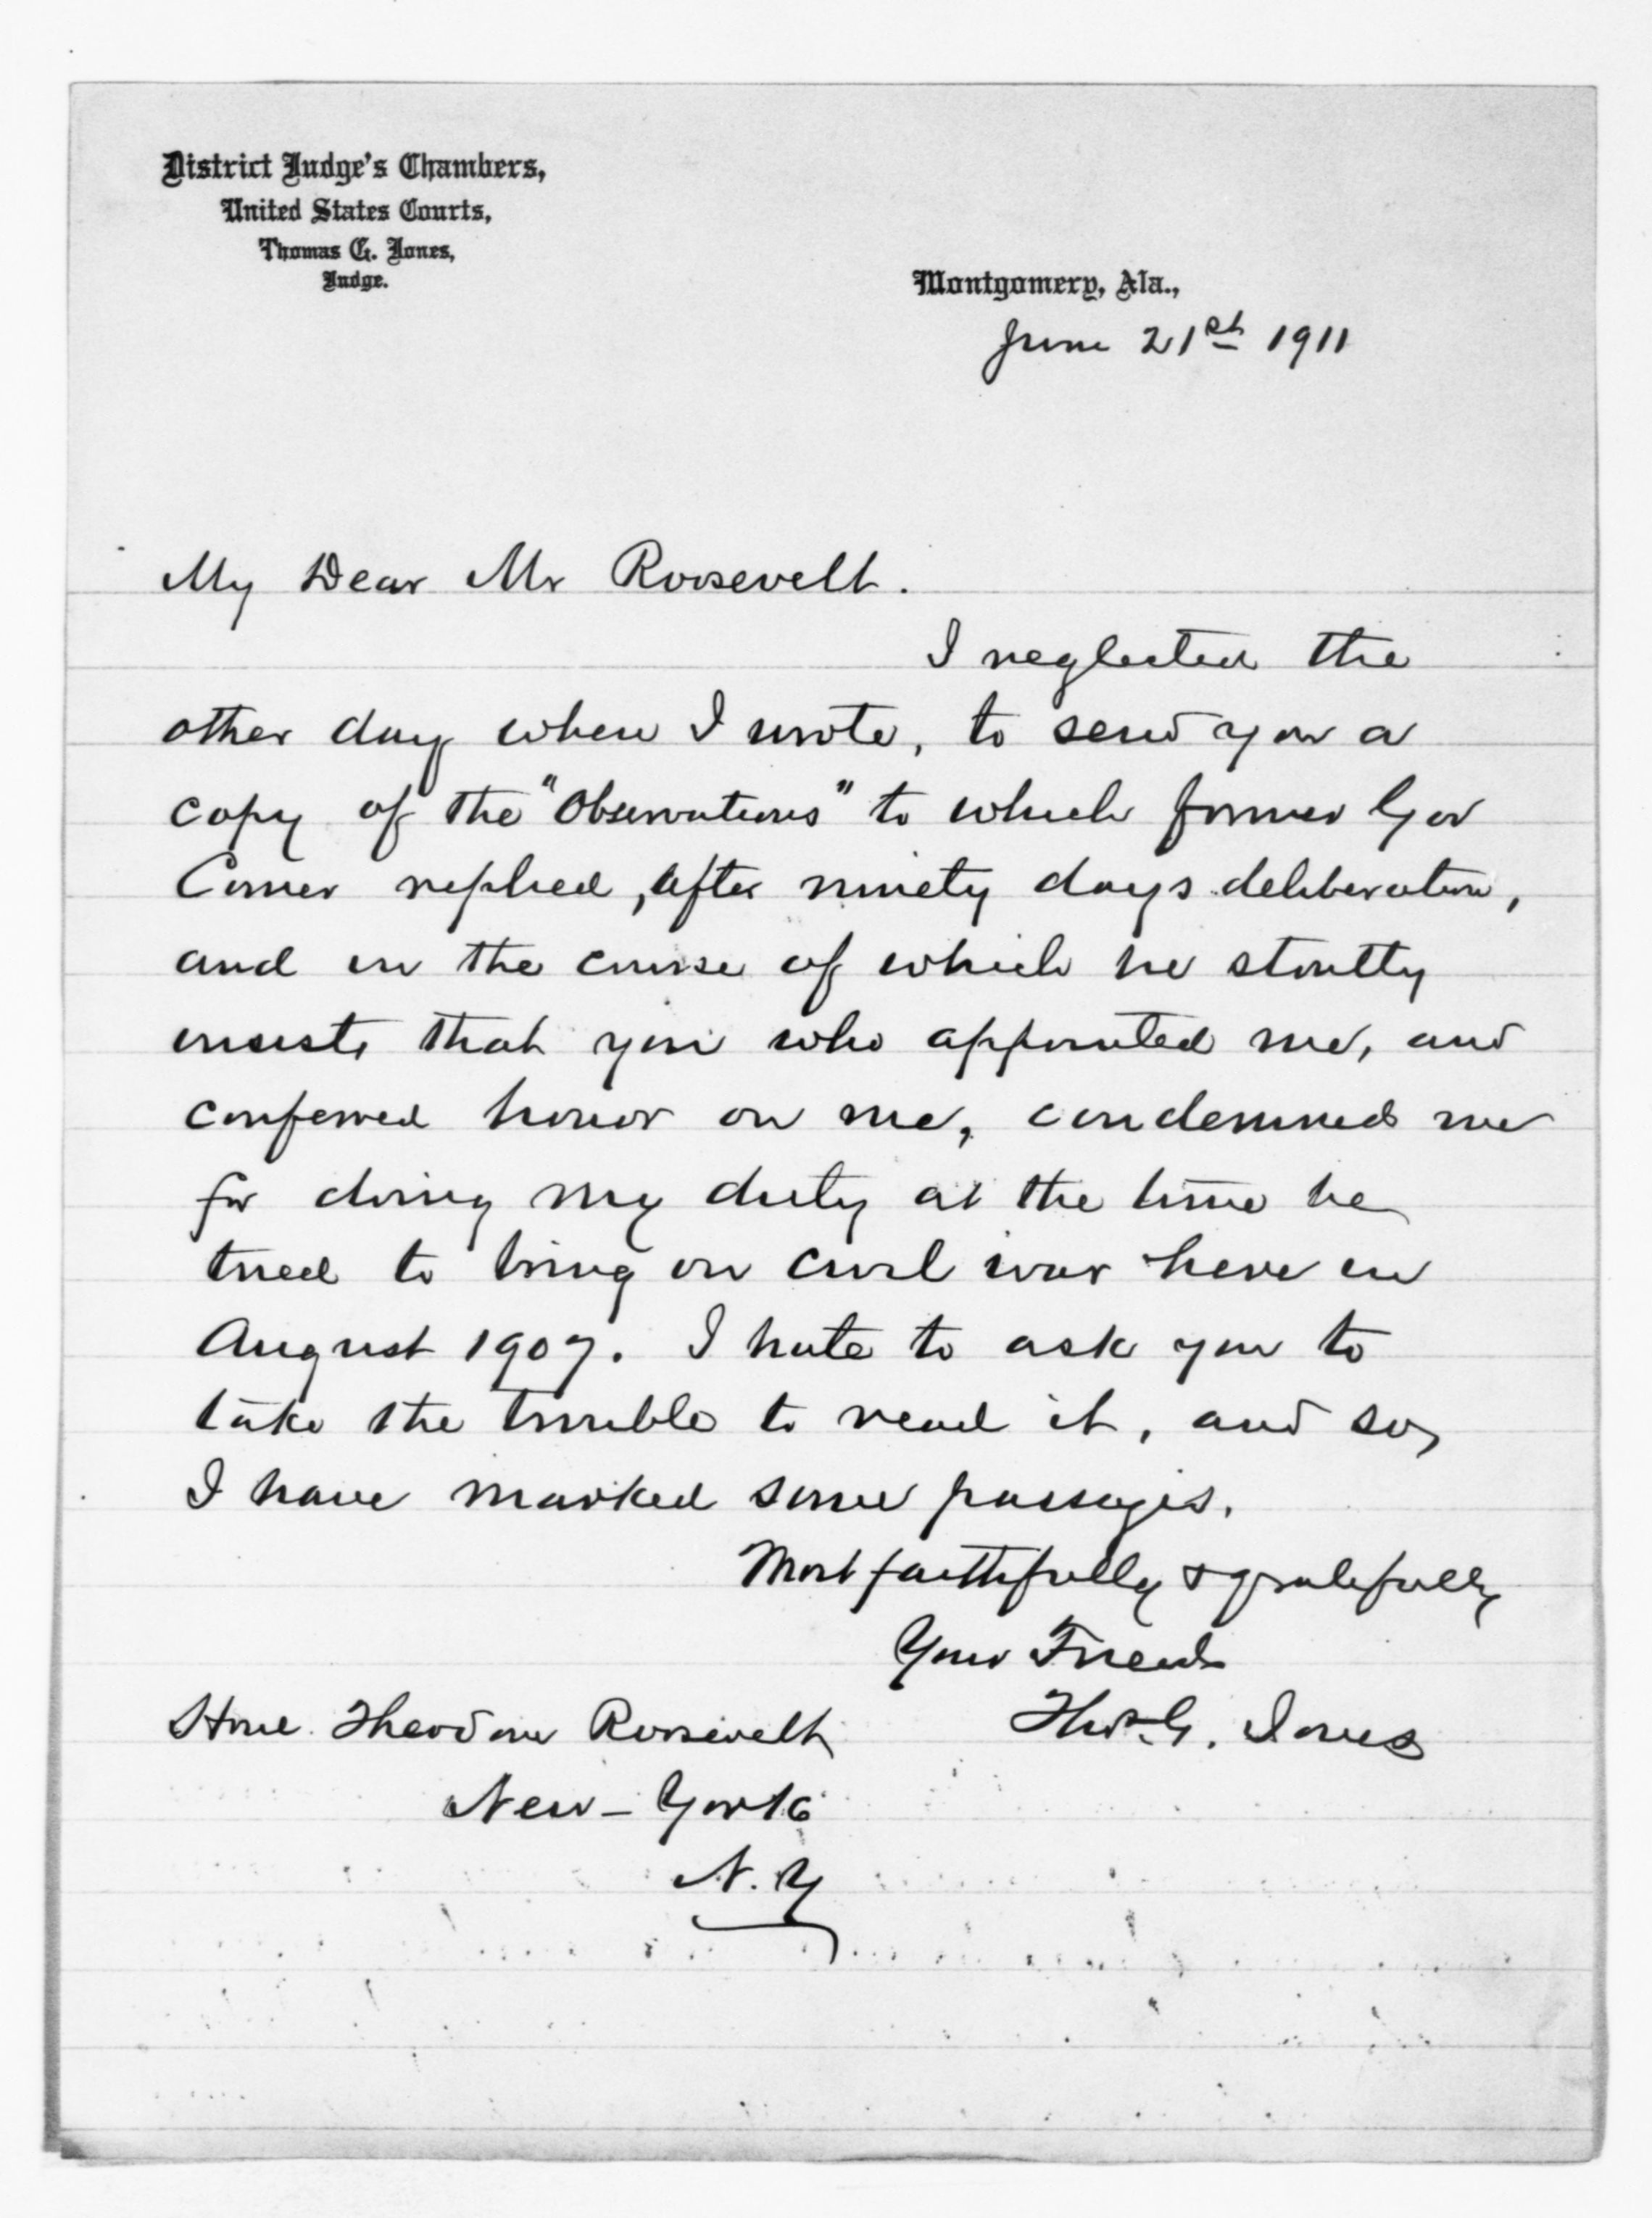 District Judge's Chambers,
United States Courts,
Thomas G. Jones,
Judge.
Montgomery, Ala.,
June 21st 1911
My Dear Mr Roosevelt.
I neglected the
other day when I wrote, to send you a
copy of the "Observations" to which former Gov
Comer replied, after ninety days deliberation,
and in the course of which he stoutly
insists that you who appointed me, and
conferred honor on me, condemned me
for doing my duty at the time he
tried to bring on civil war here in
August 1907. I hate to ask you to
take the trouble to read it, and so,
I have marked some passages.
Most faithfully & gratefully
Your Friend
Thos. G. Jones
Hon. Theodore Roosevelt
New-York
N.Y